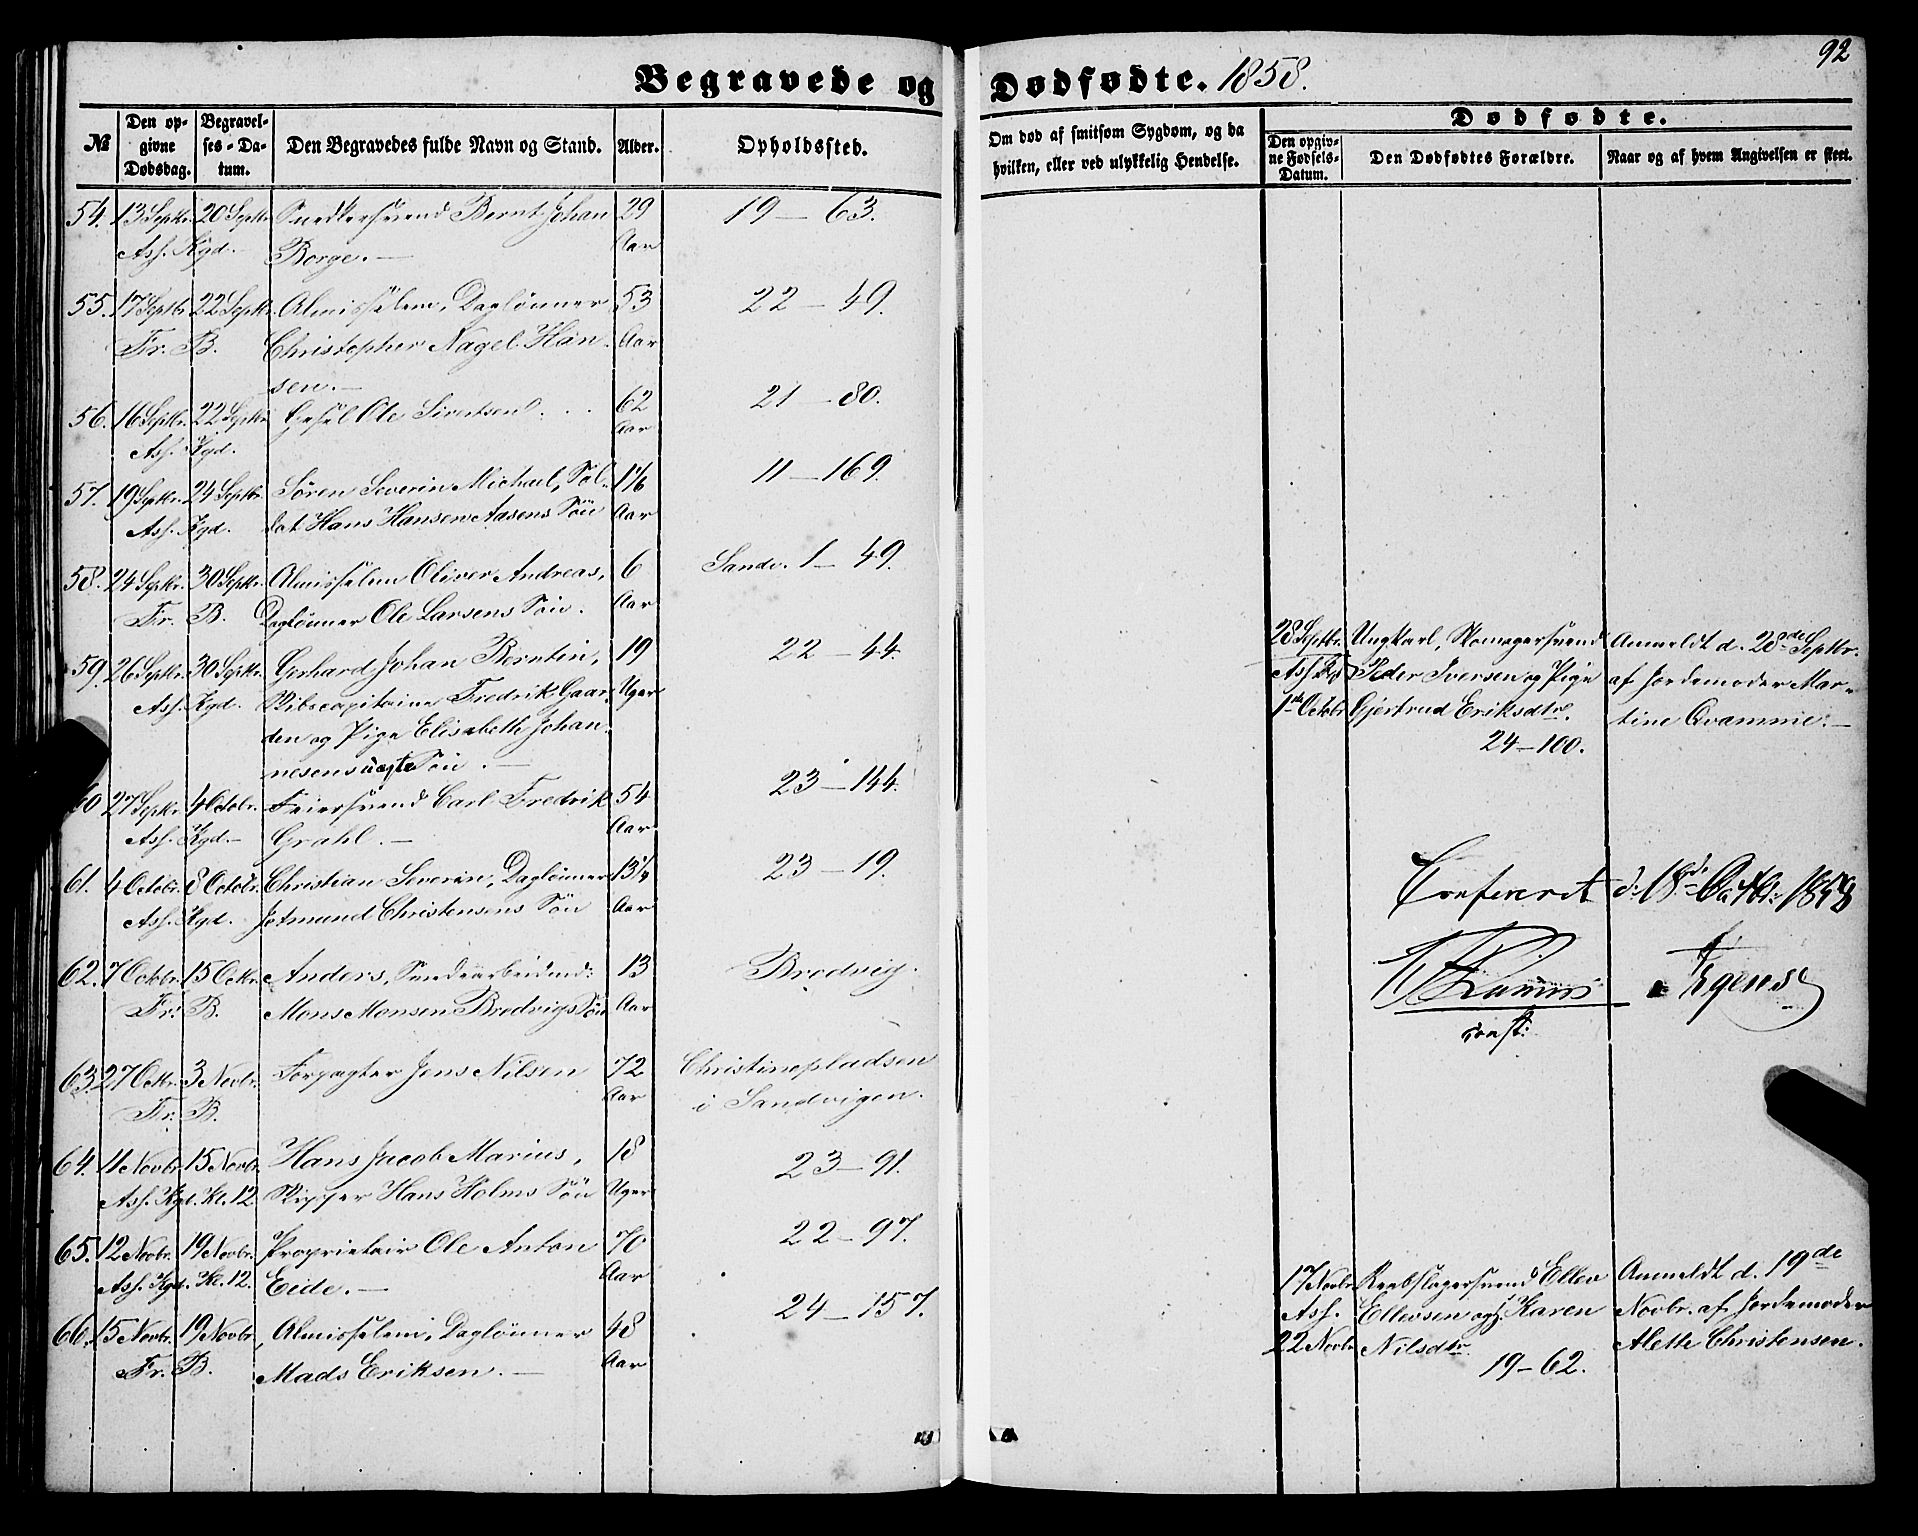 Begravede og Dødfødte. 1858.
92
№
Den opgivne Dødsdag.
Begravelses-Datum.
Den Begravedes fulde Navn og Stand.
Alder.
Opholdssted.
Om død af smitsom Sygdom, og da hvilken, eller ved ulykkelig Hendelse.
Dødfødte.
Den opgivne Fødsels-Datum.
Den Dødfødtes Forældre.
Naar og af hvem Angivelsen er skeet.
54. 13 Septbr. 20 Septbr. Snedkersvend Bernt Johan 29 19 — 63.
Ass. Kgd. — Borge. — Aar
55. 17 Septbr. 22 Septbr. Almisselem, Daglönner 53 22 — 49.
Fr. B. Christopher Nagel Han- Aar
sen. —
56. 16 Septbr. 22 Septbr. Gesel Ole Sivertsen . . . 62 21 — 80.
Ass. Kgd. Aar
57. 19 Septbr. 24 Septbr. Sören Severin Michael, Sol- 1 1/6 11 — 169.
Ass. Kgd. dat Hans Hansen Aasens Sön Aar
58. 24 Septbr. 30 Septbr. Almisselem Oliver Andreas, 6 Sandv. 1 — 49.
Fr. B. Daglönner Ole Larsens Sön. Aar
59. 26 Septbr. 30 Septbr. Gerhard Johan Berntin, 19 22 — 44.
Ass. Kgd. Skibscapitaine Fredrik Gaar- Uger
den og Pige Elisabeth Johan-
nesens uægte Sön. —
28 Septbr. Ungkarl, Skomagersvend Anmeldt d. 28de Septbr.
Ass. Peder Iversen og Pige af Jordemoder Mar-
1ste Octobr. Gjertrud Eriksdtr. tine Qvamme. —
24 — 100.
60 27 Septbr. 4 Octobr. Feiersvend Carl Fredrik 54 23 — 144.
Ass. Kgd. — Grahl. — Aar
61. 4 Octobr. 8 Octobr. Christian Severin, Daglönner 13 1/4 23 — 19.
Ass. Kgd. Jetmund Christensens Sön Aar
Confereret d. 18de Octbr. 1858
const:
62. 7 Octobr. 15 Octbr. Anders, Söndrearbeidsmd: 13 Bredvig.
Fr. B. Mons Monsen Bredvigs Sön Aar
63. 27 Octbr. 3 Novbr. Forpagter Jens Nilsen 72 Christinepladsen
Fr. B. Aar i Sandvigen.
64. 11 Novbr. 15 Novbr. Hans Jacob Marius, 18 23 — 91.
Ass. Kgd. Kl. 12 Skipper Hans Holms Sön Uger
65. 12 Novbr. 19 Novbr. Proprietair Ole Anton 70 22 — 97.
Ass. Kgd. Kl. 12. Eide. — Aar
66. 15 Novbr. 19 Novbr. Almisselem, Daglönner 48 24 — 157.
Fr. B. Mads Eriksen. — Aar
17 Novbr. Reebslagersvend Ellev Anmeldt d. 19de
Ass. Ellevsen og Karen Novbr. af Jordemoder
22 Novbr. Nilsdtr. Alette Christensen.
19 — 62.